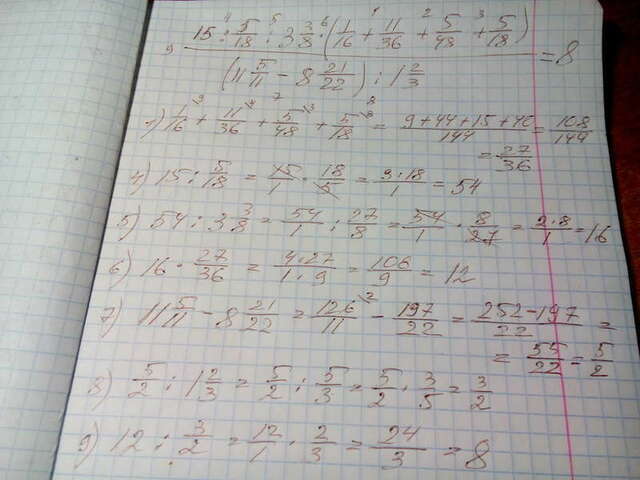 15 : 5/18 : 3 3/8 · (1/16 + 11/36 + 5/48 + 5/18)
(11 5/11 - 8 21/22) : 1 2/3 = 8
1) 1/16 + 11/36 + 5/48 + 5/18 = (9+44+15+40)/144 = 108/144
= 27/36
4) 15 : 5/18 = 15/1 · 18/5 = 3·18/1 = 54
5) 54 : 3 3/8 = 54/1 : 27/8 = 54/1 · 8/27 = 2·8/1 = 16
6) 16 · 27/36 = 4·27/1·9 = 106/9 = 12
7) 11 5/11 - 8 21/22 = 126/11 - 197/22 = (252-197)/22 =
= 55/22 = 5/2
8) 5/2 : 1 2/3 = 5/2 : 5/3 = 5/2 · 3/5 = 3/2
9) 12 : 3/2 = 12/1 · 2/3 = 24/3 = 8